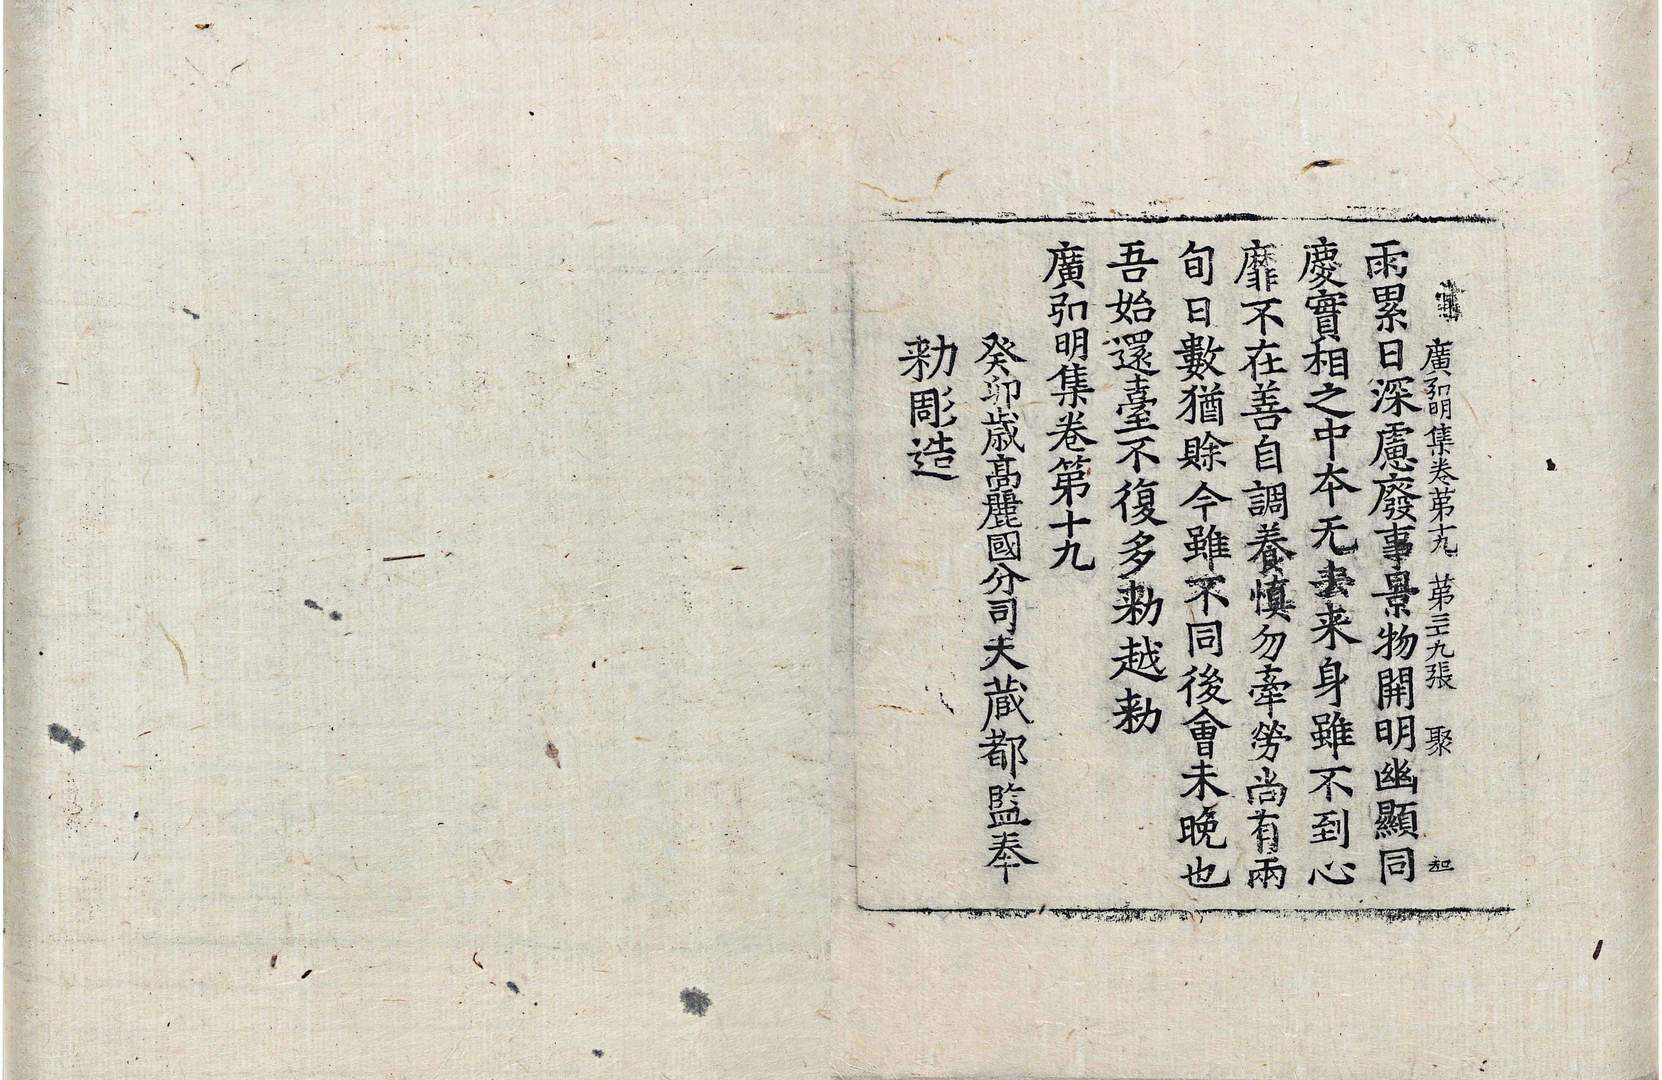 廣弘明集卷第十九 第三九張 聚
雨累日深慮廢事景物開明幽顯同
慶實相之中本无去来身雖不到心
靡不在善自調養慎勿牽勞尚有兩
旬日數猶賒今雖不同後會未晚也
吾始還臺不復多勑越勑
廣弘明集卷第十九
癸卯歳高麗國分司大蔵都監奉
勑彫造